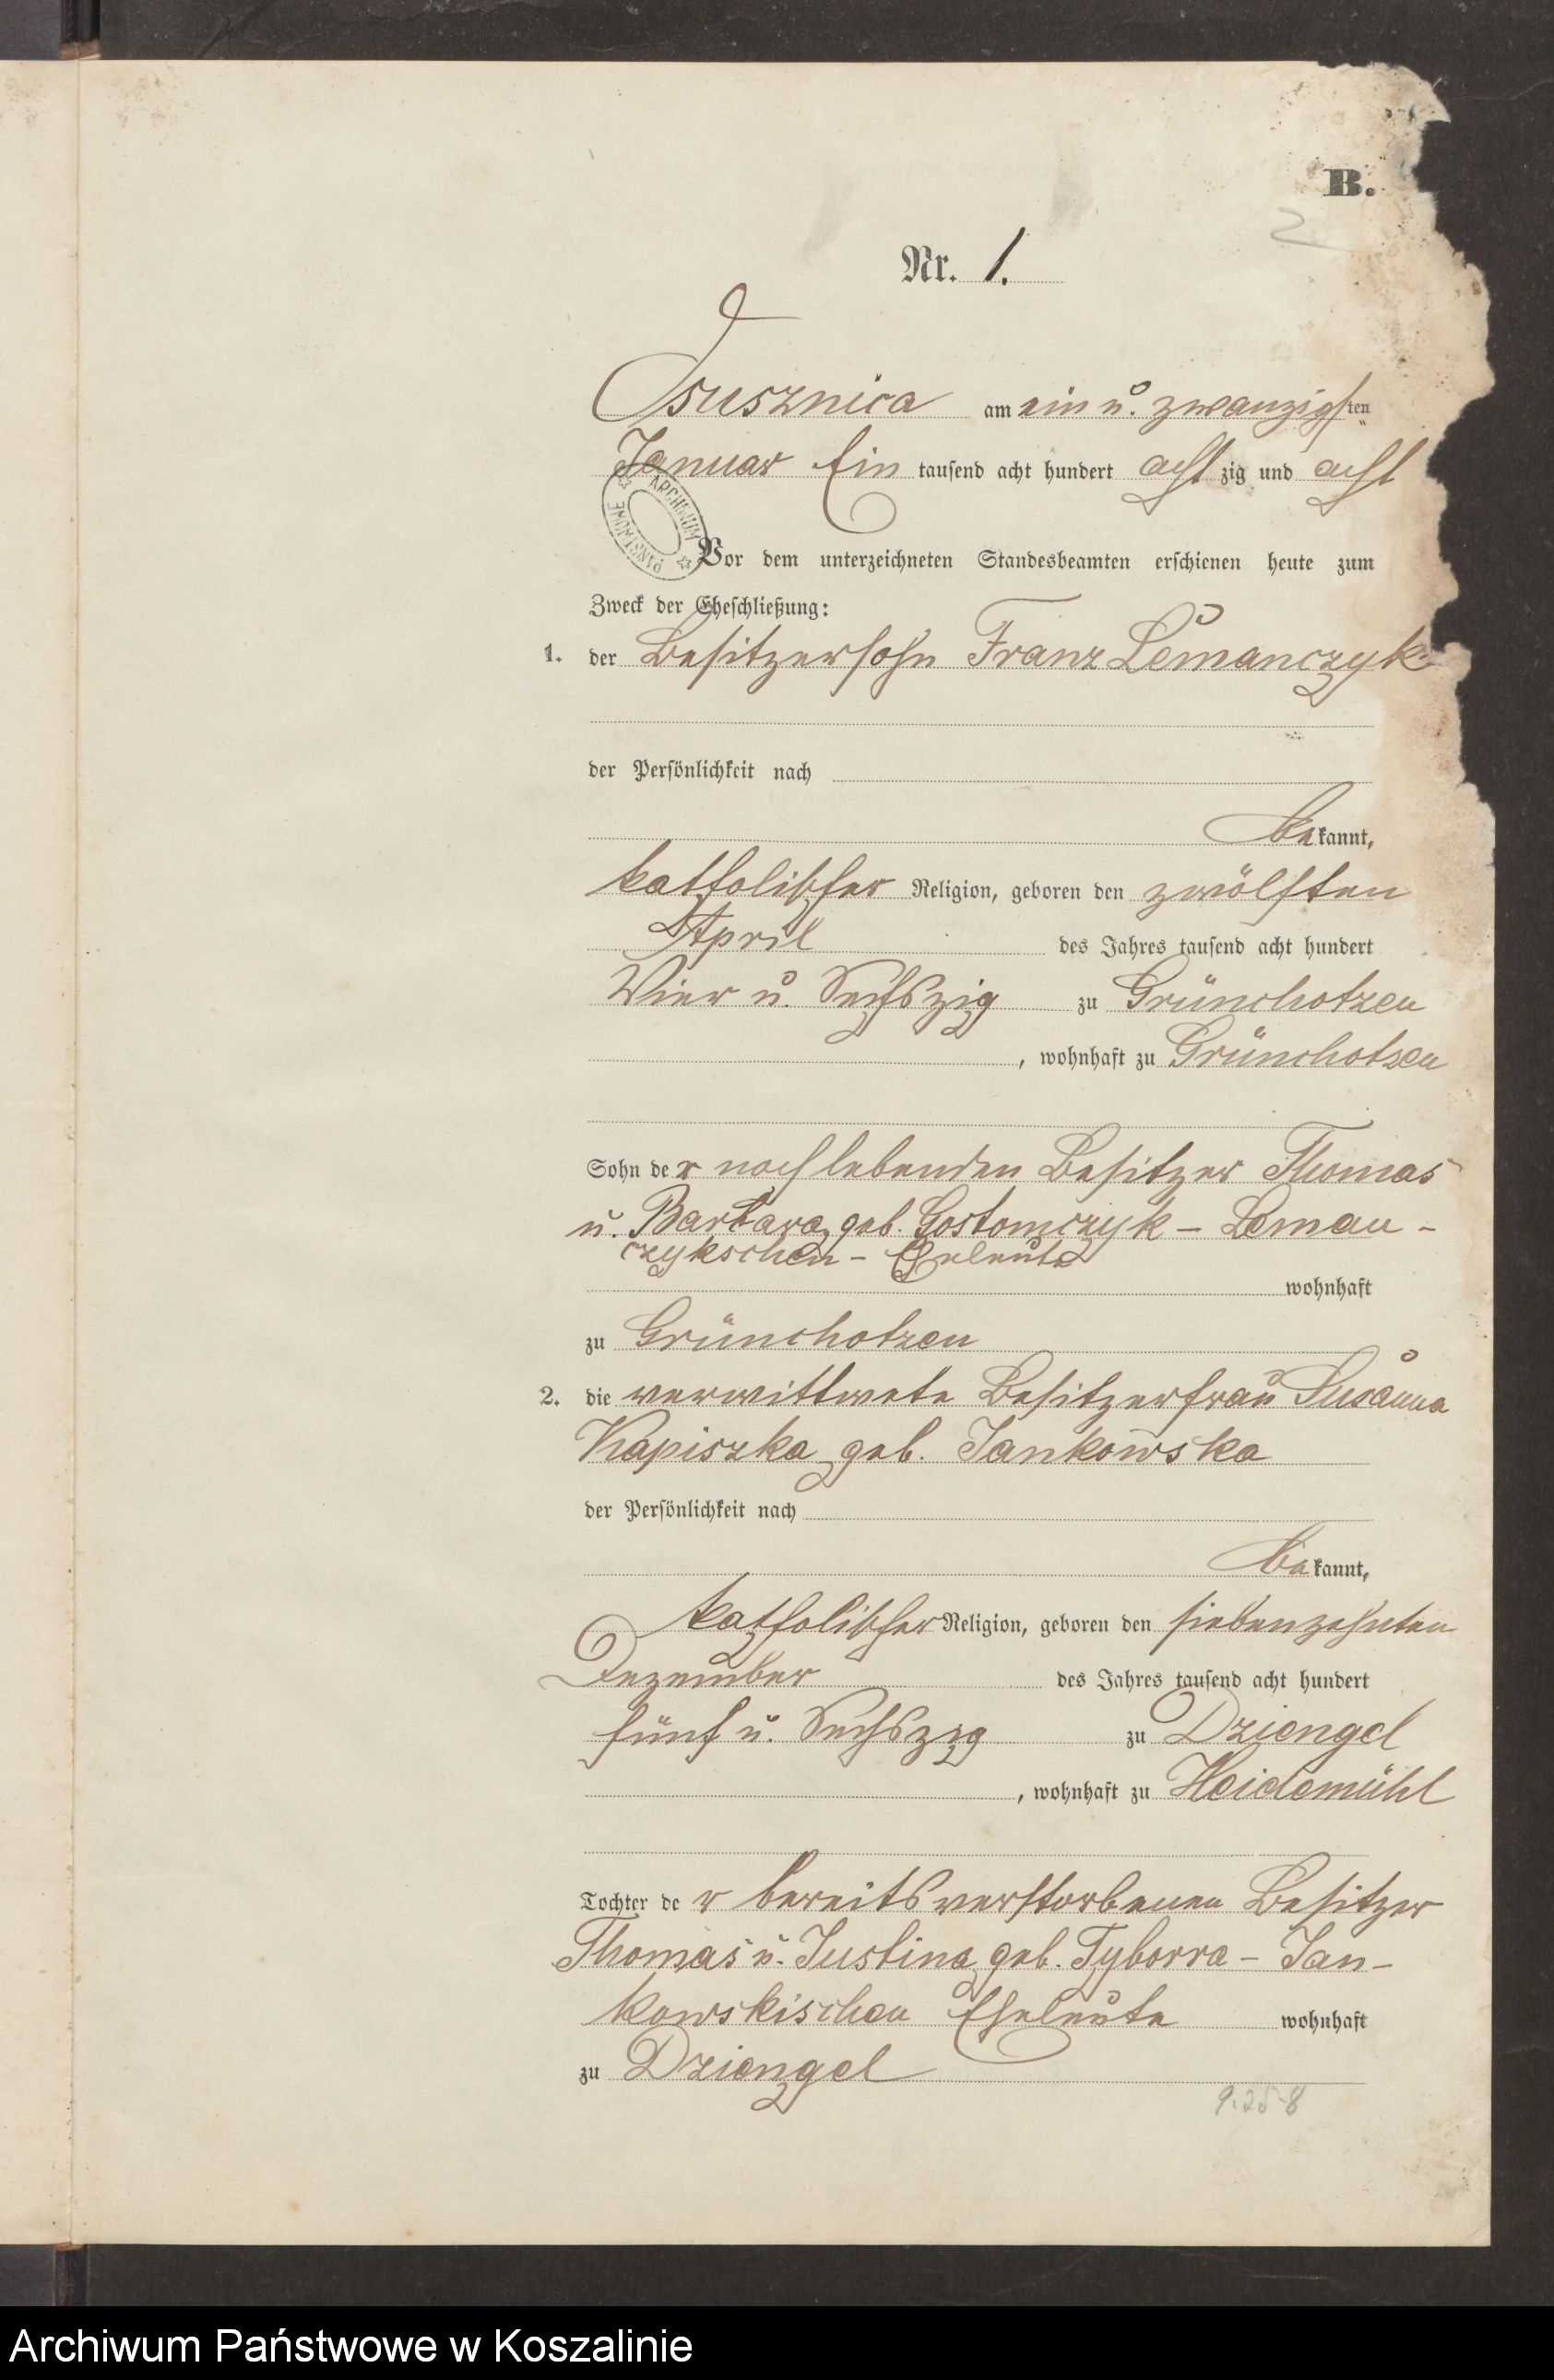 B.
2
Nr. 1.
Ossusznica am ein u. zwanzigsten
Januar Ein tausend acht hundert achtzig und acht
ARCHIWUM PAŃSTWOWE
Vor dem unterzeichneten Standesbeamten erschienen heute zum
Zweck der Eheschließung:
1. der Besitzersohn Franz Lemanczyk
der Persönlichkeit nach
bekannt,
katholischer Religion, geboren den zwölften
April des Jahres tausend acht hundert
Vier u. Sechszig zu Grünchotzen
, wohnhaft zu Grünchotzen
Sohn der noch lebenden Besitzer Thomas
u. Barbara geb. Gostomczyk – Leman-
czykschen – Eheleute
wohnhaft
zu Grünchotzen
2. die verwittwete Besitzerfrau Susanna
Kapiszka geb. Jankowska
der Persönlichkeit nach
bekannt,
katholischer Religion, geboren den siebenzehnten
Dezember des Jahres tausend acht hundert
fünf u. Sechszig zu Dziengel
, wohnhaft zu Heidemühl
Tochter der bereits verstorbenen Besitzer
Thomas u. Justina geb. Tyborra – Jan-
kowskischen Eheleute wohnhaft
zu Dziengel
9.25-8
Archiwum Państwowe w Koszalinie